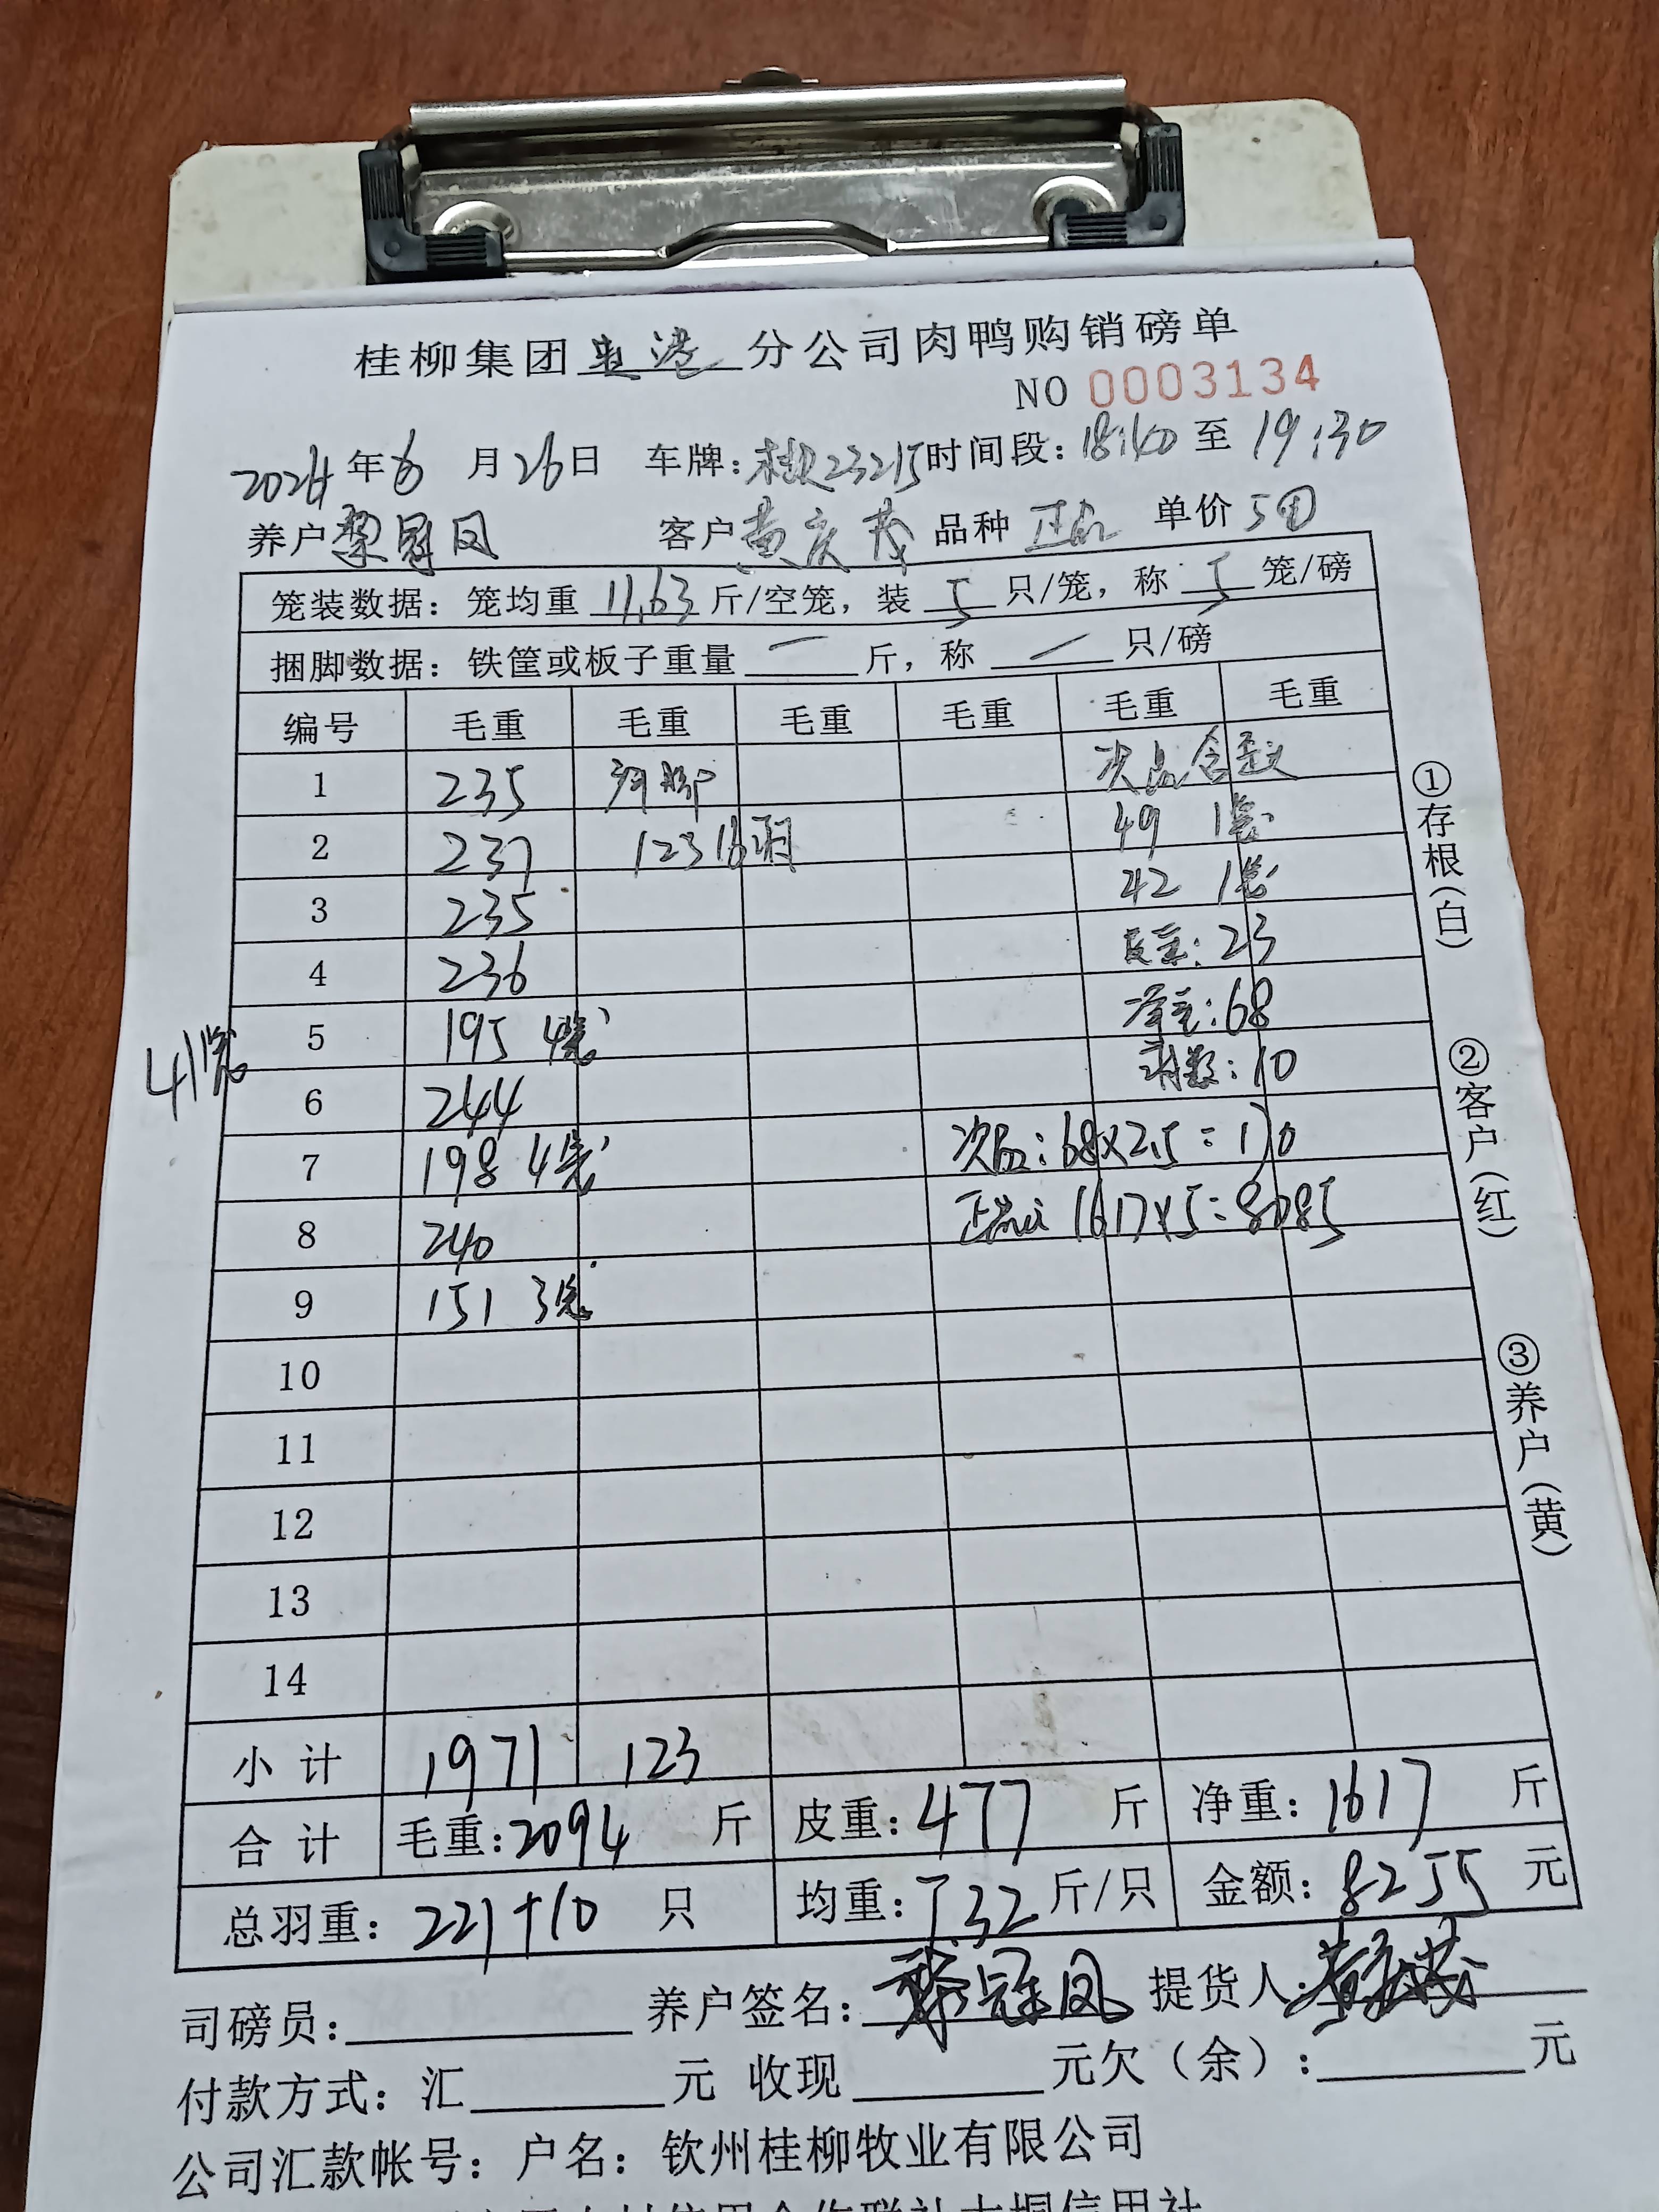 桂柳集团 分公司肉鸭购销磅单
NO 0003134
2024年6月26日 车牌: 23215时间段:18:40至19:30
养户黎冠凤 客户黄庆茂 品种正品 单价5
笼装数据:笼均重11.63斤/空笼,装5只/笼,称5笼/磅
捆脚数据:铁筐或板子重量 一 斤,称 一 只/磅
编号 毛重 毛重 毛重 毛重 毛重 毛重
1 235 脚 次品含
2 237 123 16羽 49 1笼
3 235 42 1笼
4 236 皮重:23
5 195 4笼 净重:68
6 244 羽数:10
7 198 4笼 次品:68×2.5=170
8 240 正品 1617×5=8085
9 151 3笼
41笼
10
11
12
13
14
小计 1971 123
合计 毛重:2094斤 皮重:477斤 净重:1617斤
总羽重:221+10只 均重:7.32斤/只 金额:8255元
司磅员: 养户签名:黎冠凤 提货人:黄庆茂
付款方式:汇 元 收现 元欠(余): 元
公司汇款帐号:户名:钦州桂柳牧业有限公司
①存根(白)
②客户(红)
③养户(黄)